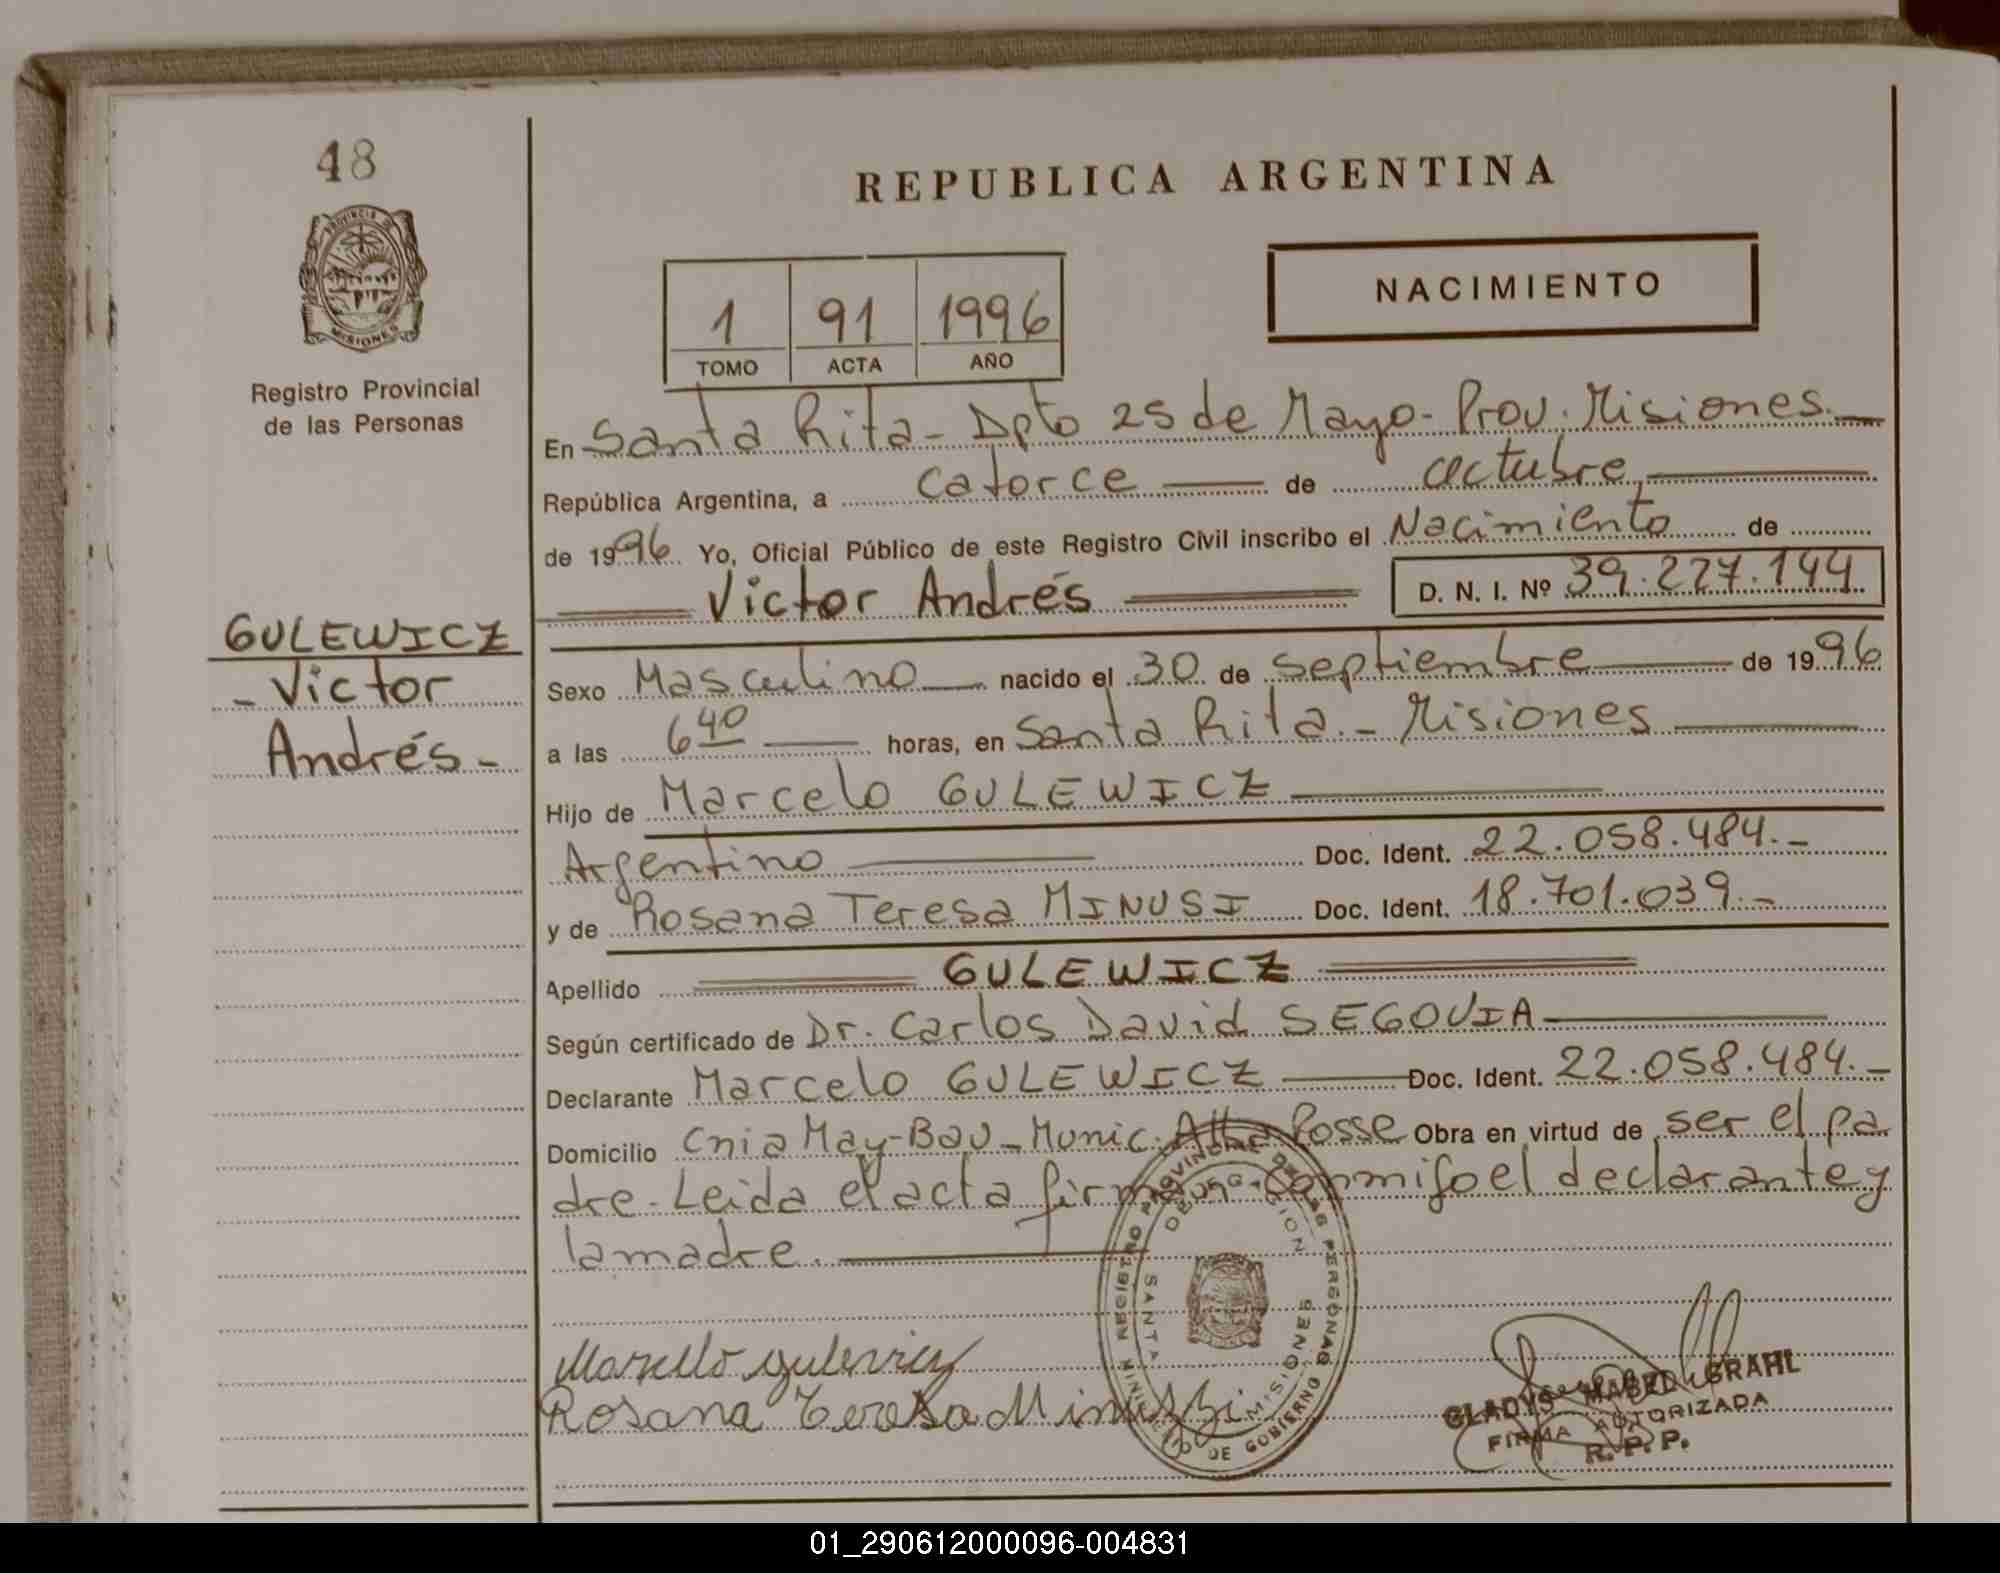 48
PROVINCIA DE
MISIONES
Registro Provincial
de las Personas
GULEWICZ
- Victor
Andrés -
REPUBLICA ARGENTINA
NACIMIENTO
1 91 1996
TOMO ACTA AÑO
En Santa Rita - Dpto 25 de Mayo - Prov. Misiones.
República Argentina, a catorce de octubre,
de 1996 Yo, Oficial Público de este Registro Civil inscribo el Nacimiento de
Victor Andrés D. N. I. Nº 39.227.144
Sexo Masculino nacido el 30 de septiembre de 1996
a las 6 40 horas, en Santa Rita. - Misiones
Hijo de Marcelo GULEWICZ
Argentino Doc. Ident. 22.058.484.-
y de Rosana Teresa MINUSI Doc. Ident. 18.701.039.-
Apellido GULEWICZ
Según certificado de Dr. Carlos David SEGOVIA
Declarante Marcelo GULEWICZ Doc. Ident. 22.058.484.-
Domicilio Cnia May-Bau - Munic. Alba Posse Obra en virtud de ser el pa
dre - Leida el acta firma conmigo el declarante y
la madre.
REGISTRO PROVINCIAL DE LAS PERSONAS
MINISTERIO DE GOBIERNO
DELEGACION
SANTA
MISIONES
Marcello Gulewicz
Rosana Teresa Minussi
GLADYS MABEL GRAHL
FIRMA AUTORIZADA
R. P. P.
01_290612000096-004831